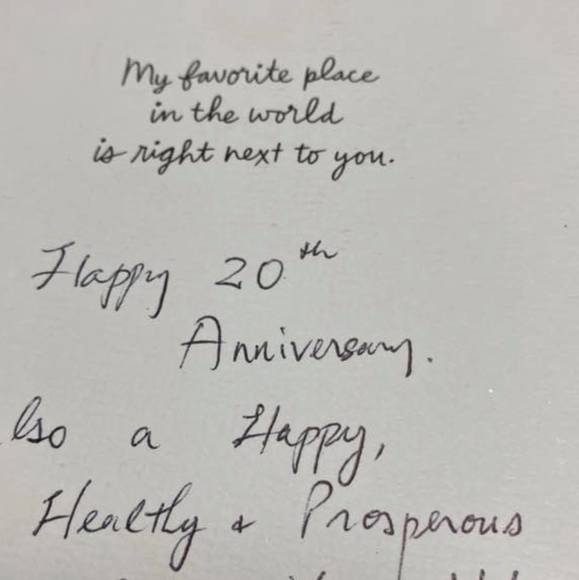 My favorite place
in the world
is right next to you.
Happy 20th
Anniversary.
lso a Happy,
Healthy & Prosperous